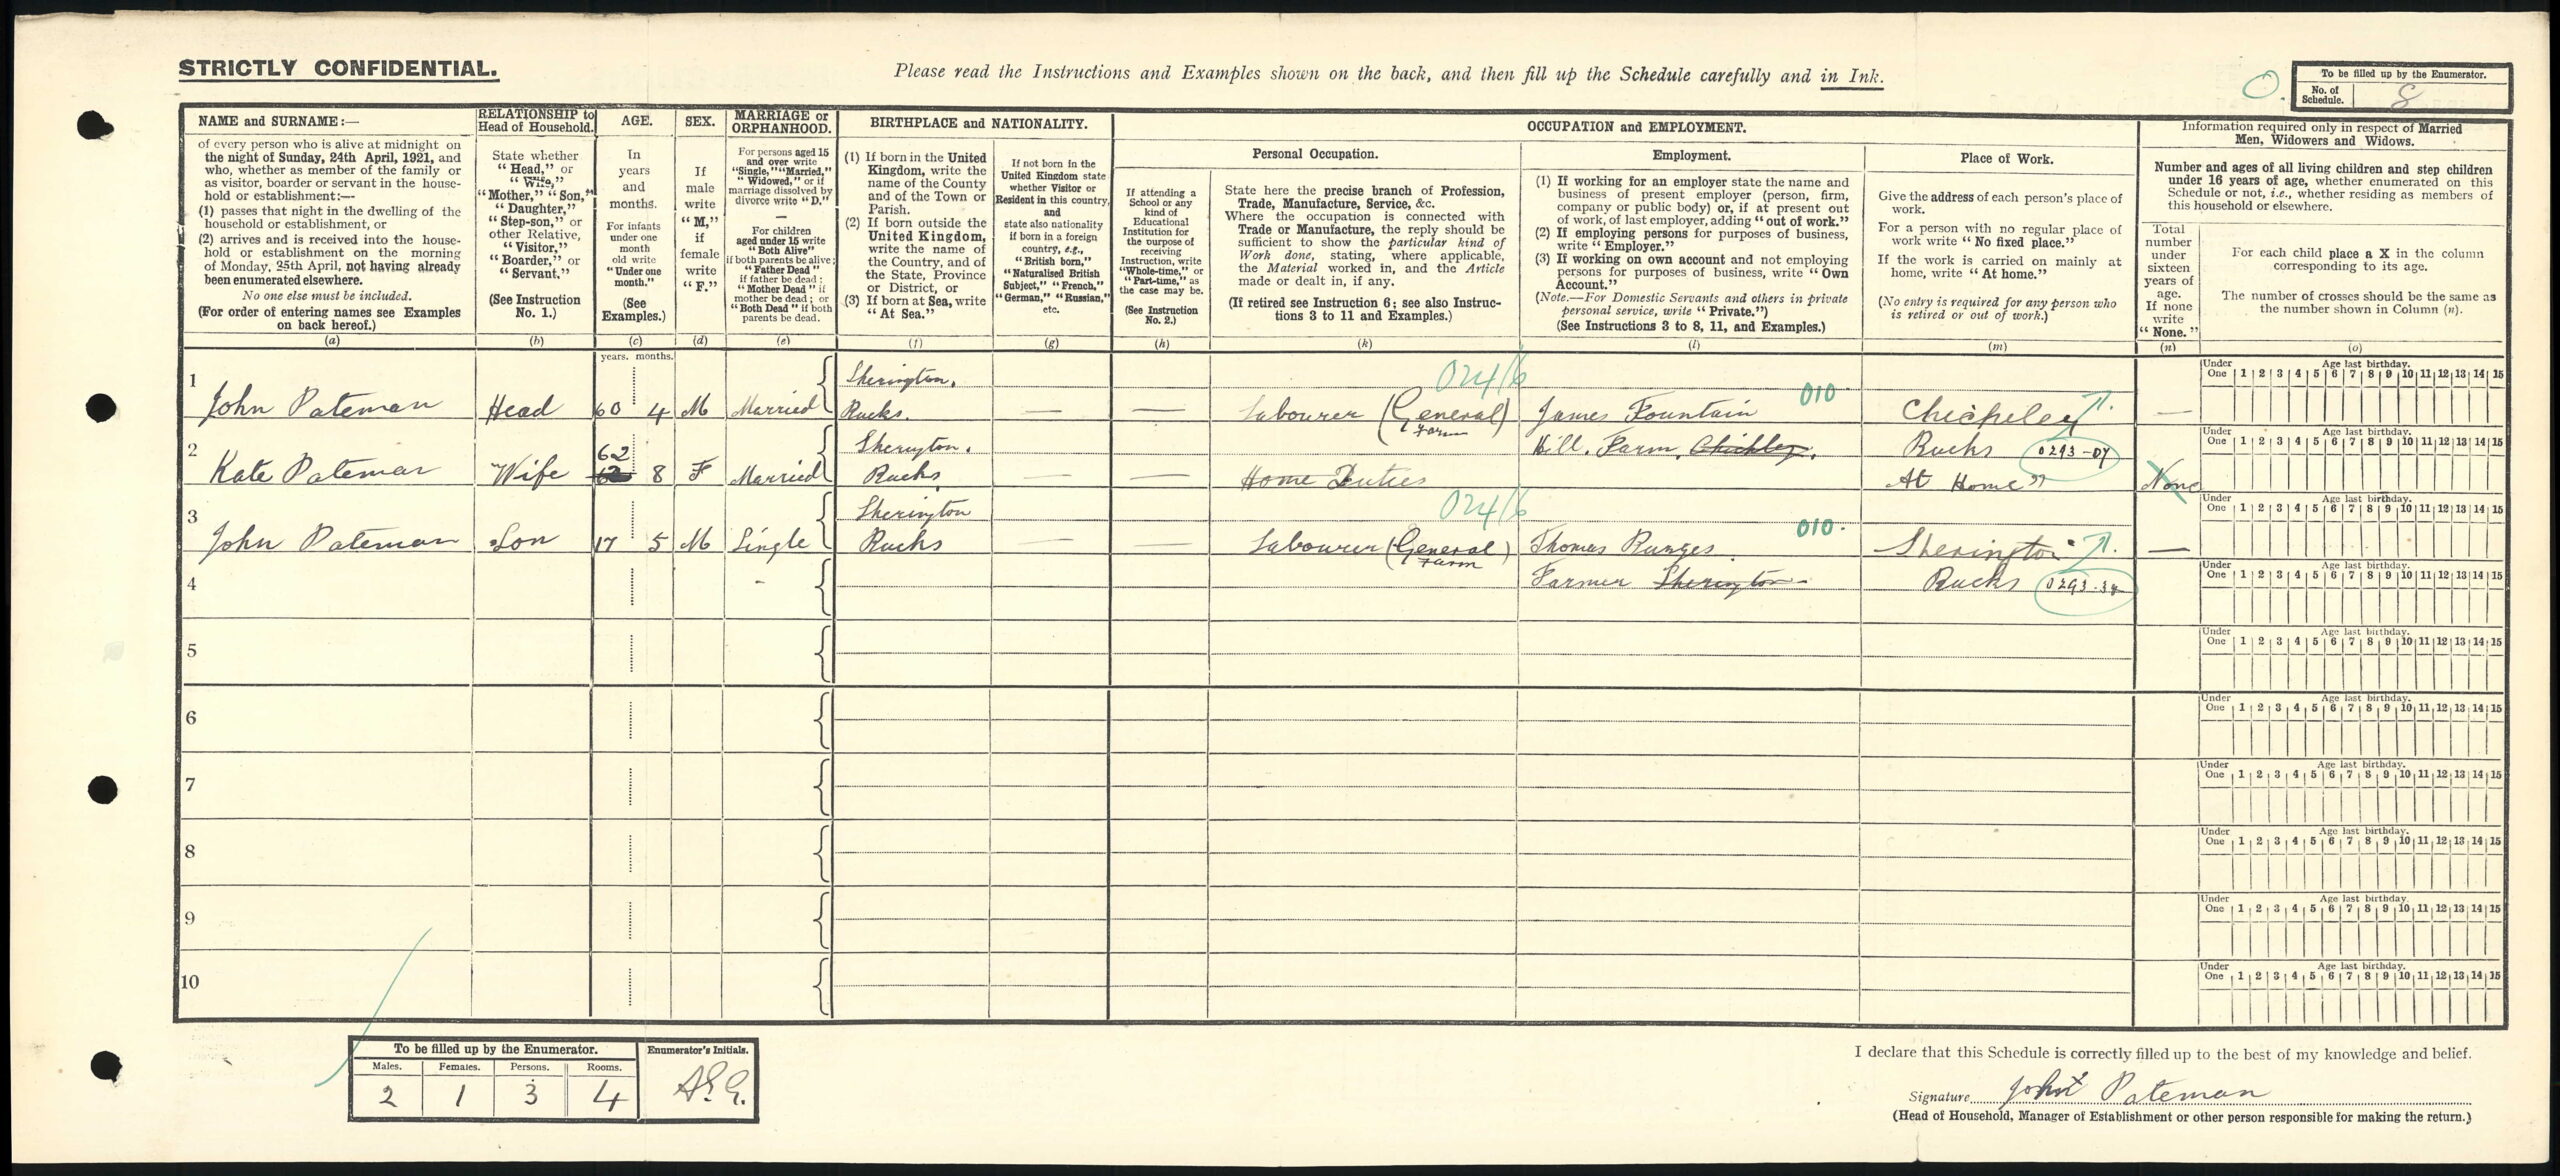 STRICTLY CONFIDENTIAL.
Please read the Instructions and Examples shown on the back, and then fill up the Schedule carefully and in Ink.
To be filled up by the Enumerator.
No. of Schedule. 8
NAME and SURNAME:—
of every person who is alive at midnight on
the night of Sunday, 24th April, 1921, and
who, whether as member of the family or
as visitor, boarder or servant in the house-
hold or establishment:—
(1) passes that night in the dwelling of the
household or establishment, or
(2) arrives and is received into the house-
hold or establishment on the morning
of Monday, 25th April, not having already
been enumerated elsewhere.
No one else must be included.
(For order of entering names see Examples
on back hereof.)
(a)
RELATIONSHIP to
Head of Household.
State whether
"Head," or
"Wife,"
"Mother," "Son,"
"Daughter,"
"Step-son," or
other Relative,
"Visitor,"
"Boarder," or
"Servant."
(See Instruction
No. 1.)
(b)
AGE.
In
years
and
months.
For infants
under one
month
old write
"Under one
month."
(See
Examples.)
(c)
SEX.
If
male
write
"M,"
if
female
write
"F."
(d)
MARRIAGE or
ORPHANHOOD.
For persons aged 15
and over write
"Single," "Married,"
"Widowed," or if
marriage dissolved by
divorce write "D."
—
For children
aged under 15 write
"Both Alive"
if both parents be alive;
"Father Dead"
if father be dead;
"Mother Dead" if
mother be dead; or
"Both Dead" if both
parents be dead.
(e)
BIRTHPLACE and NATIONALITY.
(1) If born in the United
Kingdom, write the
name of the County
and of the Town or
Parish.
(2) If born outside the
United Kingdom,
write the name of
the Country, and of
the State, Province
or District, or
(3) If born at Sea, write
"At Sea."
(f)
If not born in the
United Kingdom state
whether Visitor or
Resident in this country,
and
state also nationality
if born in a foreign
country, e.g.,
"British born,"
"Naturalised British
Subject," "French,"
"German," "Russian,"
etc.
(g)
OCCUPATION and EMPLOYMENT.
If attending a
School or any
kind of
Educational
Institution for
the purpose of
receiving
Instruction, write
"Whole-time," or
"Part-time," as
the case may be.
(See Instruction
No. 2.)
(h)
Personal Occupation.
State here the precise branch of Profession,
Trade, Manufacture, Service, &c.
Where the occupation is connected with
Trade or Manufacture, the reply should be
sufficient to show the particular kind of
Work done, stating, where applicable,
the Material worked in, and the Article
made or dealt in, if any.
(If retired see Instruction 6; see also Instruc-
tions 3 to 11 and Examples.)
(k)
Employment.
(1) If working for an employer state the name and
business of present employer (person, firm,
company or public body) or, if at present out
of work, of last employer, adding "out of work."
(2) If employing persons for purposes of business,
write "Employer."
(3) If working on own account and not employing
persons for purposes of business, write "Own
Account."
(Note.—For Domestic Servants and others in private
personal service, write "Private.")
(See Instructions 3 to 8, 11, and Examples.)
(l)
Place of Work.
Give the address of each person's place of
work.
For a person with no regular place of
work write "No fixed place."
If the work is carried on mainly at
home, write "At home."
(No entry is required for any person who
is retired or out of work.)
(m)
Information required only in respect of Married
Men, Widowers and Widows.
Number and ages of all living children and step children
under 16 years of age, whether enumerated on this
Schedule or not, i.e., whether residing as members of
this household or elsewhere.
Total
number
under
sixteen
years of
age.
If none
write
"None."
(n)
For each child place a X in the column
corresponding to its age.
The number of crosses should be the same as
the number shown in Column (n).
(o)
years. months.
1 Sherington. 024/6 010
John Pateman Head 60 4 M Married Bucks. — — Labourer (General) Farm James Fountain Chicheley —
Under One Age last birthday. 1 2 3 4 5 6 7 8 9 10 11 12 13 14 15
2 62 Sherington. Hill. Farm. Chichley. Bucks 0293-07
Kate Pateman Wife 62 8 F Married Bucks — — Home Duties At Home None
Under One Age last birthday. 1 2 3 4 5 6 7 8 9 10 11 12 13 14 15
3 Sherington 024/6 010
John Pateman Son 17 5 M Single Bucks — — Labourer (General) Farm Thomas Runges Sherington —
Under One Age last birthday. 1 2 3 4 5 6 7 8 9 10 11 12 13 14 15
4 Farmer Sherington Bucks 0293-34
Under One Age last birthday. 1 2 3 4 5 6 7 8 9 10 11 12 13 14 15
5
Under One Age last birthday. 1 2 3 4 5 6 7 8 9 10 11 12 13 14 15
6
Under One Age last birthday. 1 2 3 4 5 6 7 8 9 10 11 12 13 14 15
7
Under One Age last birthday. 1 2 3 4 5 6 7 8 9 10 11 12 13 14 15
8
Under One Age last birthday. 1 2 3 4 5 6 7 8 9 10 11 12 13 14 15
9
Under One Age last birthday. 1 2 3 4 5 6 7 8 9 10 11 12 13 14 15
10
Under One Age last birthday. 1 2 3 4 5 6 7 8 9 10 11 12 13 14 15
To be filled up by the Enumerator.
Males. Females. Persons. Rooms.
2 1 3 4
Enumerator's Initials.
A.E.G.
I declare that this Schedule is correctly filled up to the best of my knowledge and belief.
Signature John Pateman
(Head of Household, Manager of Establishment or other person responsible for making the return.)